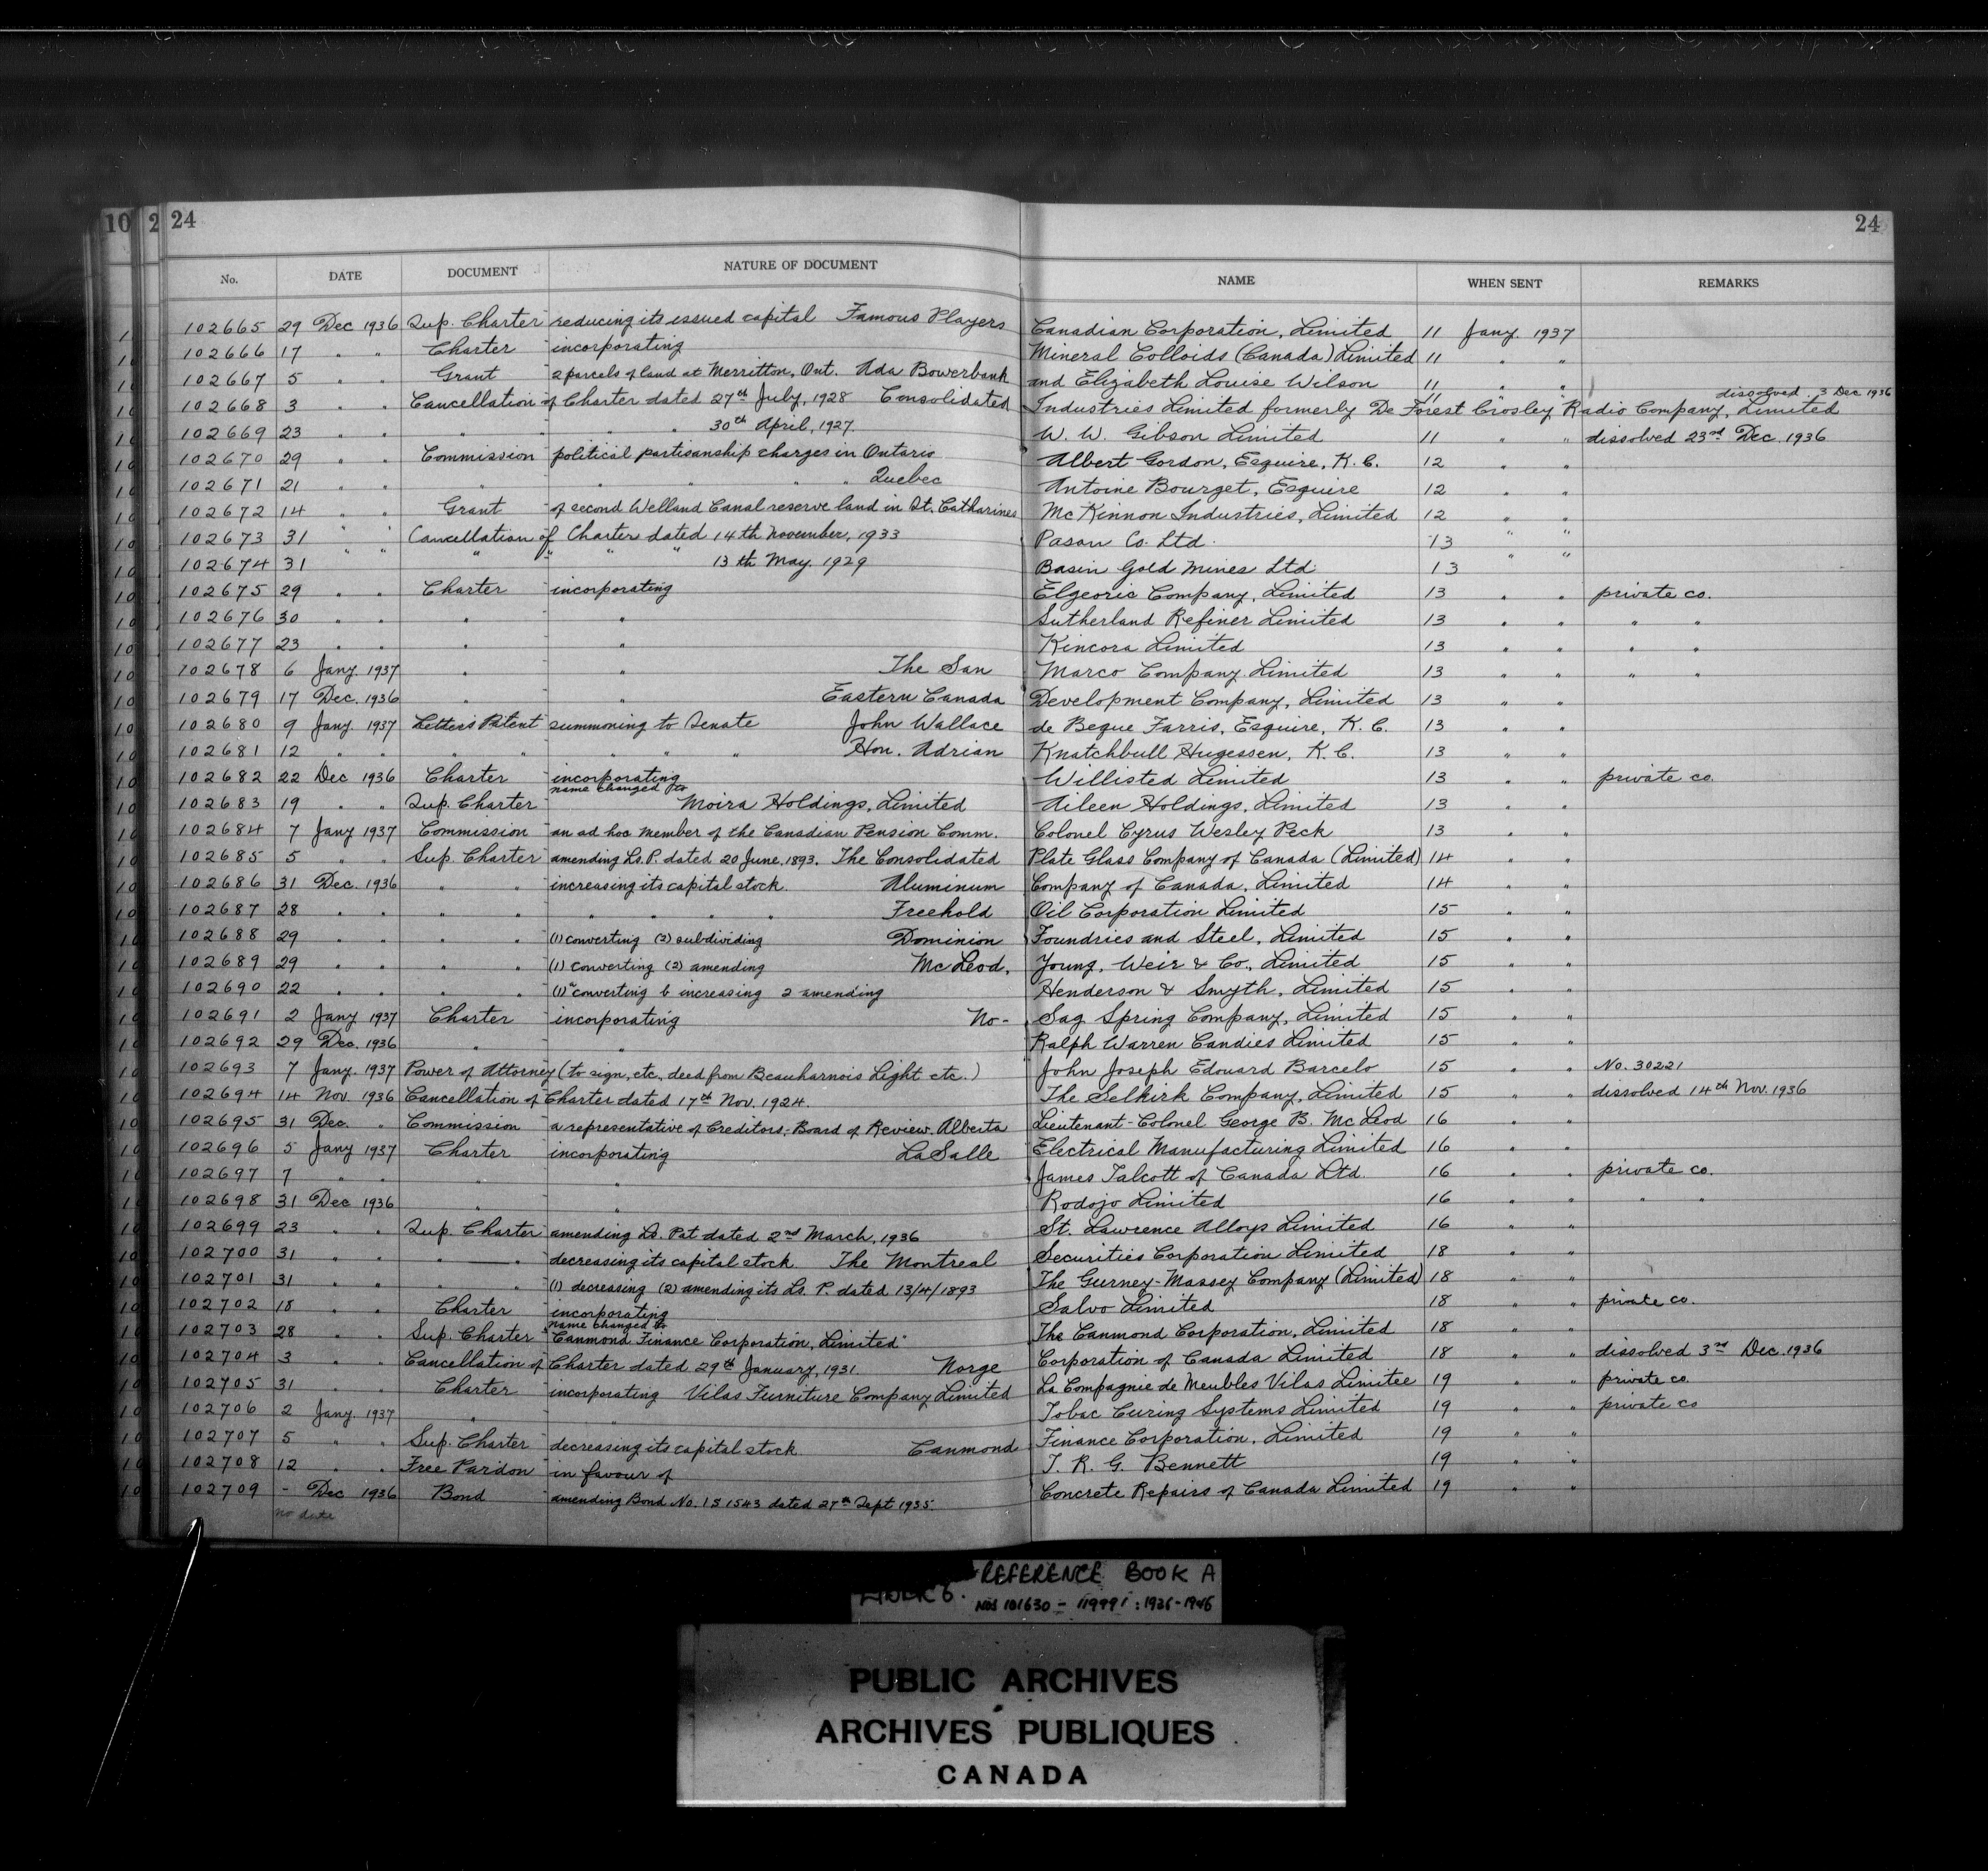 10 2 24 24
No. DATE DOCUMENT NATURE OF DOCUMENT NAME WHEN SENT REMARKS
102665 29 Dec 1936 Sup. Charter reducing its issued capital Famous Players Canadian Corporation, Limited 11 Jany. 1937
102666 17 " " Charter incorporating Mineral Colloids (Canada) Limited 11 " "
102667 5 " " Grant 2 parcels of land at Merritton, Ont. Ada Bowerbank and Elizabeth Louise Wilson 11 " "
dissolved 3 Dec 1936
102668 3 " " Cancellation of Charter dated 27th July, 1928 Consolidated Industries Limited formerly De Forest Crosley Radio Company, Limited 11 " "
102669 23 " " " " " 30th April, 1927. W. W. Gibson Limited 11 " " dissolved 23rd Dec. 1936
102670 29 " " Commission political partisanship charges in Ontario Albert Gordon, Esquire, K.C. 12 " "
102671 21 " " " " " " " Quebec Antoine Bourget, Esquire 12 " "
102672 14 " " Grant of second Welland Canal reserve land in St. Catharines McKinnon Industries, Limited 12 " "
102673 31 " " Cancellation of Charter dated 14th November, 1933 Pason Co. Ltd. 13 " "
102674 31 " " " " " " 13th May. 1929 Basin Gold Mines Ltd. 13 " "
102675 29 " " Charter incorporating Elgeoric Company, Limited 13 " " private co.
102676 30 " " " " Sutherland Refiner Limited 13 " " " "
102677 23 " " " " Kincora Limited 13 " " " "
102678 6 Jany. 1937 " " The San Marco Company Limited 13 " " " "
102679 17 Dec. 1936 " " Eastern Canada Development Company, Limited 13 " "
102680 9 Jany. 1937 Letters Patent summoning to Senate John Wallace de Beque Farris, Esquire, K.C. 13 " "
102681 12 " " " " " " " Hon. Adrian Knatchbull Hugessen, K.C. 13 " "
102682 22 Dec 1936 Charter incorporating Willisted Limited 13 " " private co.
name changed to
102683 19 " " Sup. Charter Moira Holdings, Limited Aileen Holdings, Limited 13 " "
102684 7 Jany 1937 Commission an ad hoc member of the Canadian Pension Comm. Colonel Cyrus Wesley Peck 13 " "
102685 5 " " Sup. Charter amending Ls. P. dated 20 June, 1893. The Consolidated Plate Glass Company of Canada (Limited) 14 " "
102686 31 Dec. 1936 " " increasing its capital stock. Aluminum Company of Canada, Limited 14 " "
102687 28 " " " " " " " " Freehold Oil Corporation Limited 15 " "
102688 29 " " " " (1) converting (2) subdividing Dominion Foundries and Steel, Limited 15 " "
102689 29 " " " " (1) converting (2) amending McLeod, Young, Weir & Co., Limited 15 " "
102690 22 " " " " (1) a converting b increasing 2 amending Henderson & Smyth, Limited 15 " "
102691 2 Jany 1937 Charter incorporating No- Sag Spring Company, Limited 15 " "
102692 29 Dec. 1936 " " Ralph Warren Candies Limited 15 " "
102693 7 Jany. 1937 Power of Attorney (to sign, etc., deed from Beauharnois Light etc.) John Joseph Edouard Barcelo 15 " " No. 30221
102694 14 Nov. 1936 Cancellation of Charter dated 17th Nov. 1924. The Selkirk Company, Limited 15 " " dissolved 14th Nov. 1936
102695 31 Dec. " Commission a representative of Creditors, Board of Review. Alberta Lieutenant-Colonel George B. McLeod 16 " "
102696 5 Jany 1937 Charter incorporating LaSalle Electrical Manufacturing Limited 16 " "
102697 7 " " " " James Talcott of Canada Ltd. 16 " " private co.
102698 31 Dec 1936 " " Rodojo Limited 16 " " " "
102699 23 " " Sup. Charter amending Ls. Pat dated 2nd March, 1936 St. Lawrence Alloys Limited 16 " "
102700 31 " " " " decreasing its capital stock. The Montreal Securities Corporation Limited 18 " "
102701 31 " " " " (1) decreasing (2) amending its Ls. P. dated 13/4/1893 The Gurney-Massey Company (Limited) 18 " "
102702 18 " " Charter incorporating Salvo Limited 18 " " private co.
name changed to
102703 28 " " Sup. Charter "Canmond Finance Corporation, Limited" The Canmond Corporation, Limited 18 " "
102704 3 " " Cancellation of Charter dated 29th January, 1931. Norge Corporation of Canada Limited 18 " " dissolved 3rd Dec. 1936
102705 31 " " Charter incorporating Vilas Furniture Company Limited La Compagnie de Meubles Vilas Limitee 19 " " private co.
102706 2 Jany. 1937 " " Tobac Curing Systems Limited 19 " " private co
102707 5 " " Sup. Charter decreasing its capital stock. Canmond Finance Corporation, Limited 19 " "
102708 12 " " Free Pardon in favour of T. R. G. Bennett 19 " "
102709 - Dec 1936 Bond amending Bond No. 151543 dated 27th Sept 1935. Concrete Repairs of Canada Limited 19 " "
no date
REFERENCE BOOK A
NOS 101630 - 119991 : 1936-1946
PUBLIC ARCHIVES
ARCHIVES PUBLIQUES
CANADA